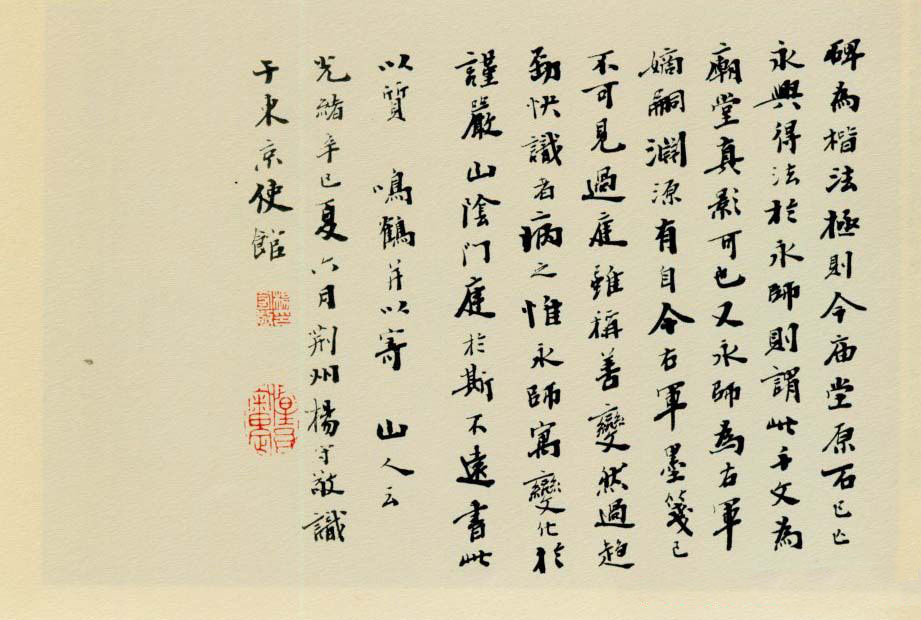 碑為楷法極則今庙堂原石已亡
永興得法於永師則謂此千文為
廟堂真影可也又永師為右軍
嫡嗣淵源有自今右軍墨箋已
不可見過庭雖稱善變然過趋
勁快識者病之惟永師寓變化於
謹嚴山陰門庭於斯不遠書此
以質 鳴鶴并以寄 山人云
光緒辛巳夏六月荊州楊守敬識
于東京使館